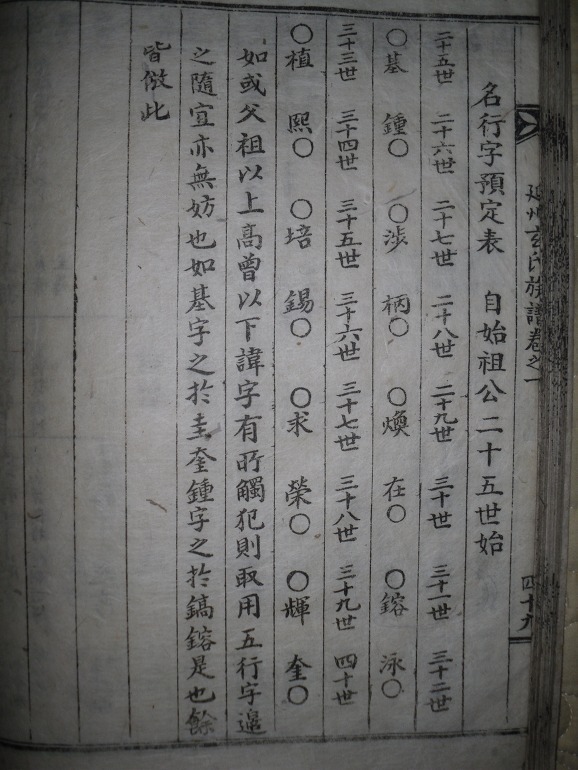 延州玄氏族譜卷之一
四十九
名行字預定表 自始祖公二十五世始
二十五世 二十六世 二十七世 二十八世 二十九世 三十世 三十一世 三十二世
○基 鍾○ ○涉 柄○ ○煥 在○ ○鎔 泳○
三十三世 三十四世 三十五世 三十六世 三十七世 三十八世 三十九世 四十世
○植 熙○ ○培 錫○ ○求 榮○ ○輝 奎○
如或父祖以上高曾以下諱字有所觸犯則取用五行字邊
之隨宜亦無妨也如基字之於圭奎鍾字之於鎬鎔是也餘
皆倣此